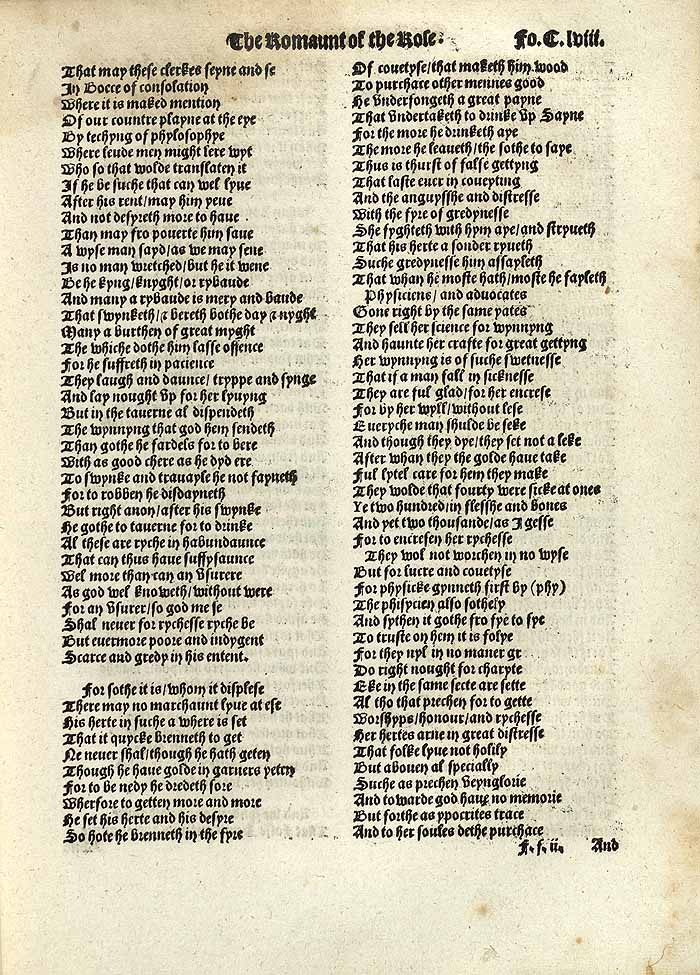 The Romaunt of the Rose. Fo. C. lviii.
That may these clerkes seyne and se
In Bocce of consolation
Where it is maked mention
Of our countre playne at the eye
By techyng of phylosophye
Where leude men might lere wyt
Who so that wolde translaten it
If he be suche that can wel lyue
After his rent/may him yeue
And not desyreth more to haue
Than may fro pouerte him saue
A wyse man sayd/as we may sene
Is no man wretched/but he it wene
Be he kyng/knyght/or rybaude
And many a rybaude is mery and baude
That swynketh/& bereth bothe day & nyght
Many a burthen of great myght
The whiche dothe him lasse offence
For he suffreth in pacience
They laugh and daunce/ tryppe and synge
And lay nought vp for her lyuyng
But in the tauerne al dispendeth
The wynnyng that god hem sendeth
Than gothe he fardels for to bere
With as good chere as he dyd ere
To swynke and trauayle he not fayneth
For to robben he disdayneth
But right anon/after his swynke
He gothe to tauerne for to drinke
Al these are ryche in habundaunce
That can thus haue suffysaunce
Wel more than can an vsurere
As god wel knoweth/without were
For an vsurer/so god me se
Shal neuer for rychesse ryche be
But euermore poore and indygent
Scarce and gredy in his entent.
For sothe it is/whom it displese
There may no marchaunt lyue at ese
His herte in suche a where is set
That it quycke brenneth to get
Ne neuer shal/though he hath geten
Though he haue golde in garners yeten
For to be nedy he dredeth sore
Wherfore to getten more and more
He set his herte and his desyre
So hote he brenneth in the fyre
Of couetyse/that maketh him wood
To purchace other mennes good
He vnderfongeth a great payne
That vndertaketh to drinke vp Sayne
For the more he drinketh aye
The more he leaueth/the sothe to saye
Thus is thurst of false gettyng
That laste euer in coueyting
And the anguysshe and distresse
With the fyre of gredynesse
She fyghteth with hym aye/and stryueth
That his herte a sonder ryueth
Suche gredynesse him assayleth
That whan he moste hath/moste he fayleth
Physiciens/ and aduocates
Gone right by the same yates
They sell her science for wynnyng
And haunte her crafte for great gettyng
Her wynnyng is of suche swetnesse
That if a man fall in sicknesse
They are ful glad/for her encrese
For by her wyll/without lese
Eueryche man shulde be seke
And though they dye/they set not a leke
After whan they the golde haue take
Ful lytel care for hem they make
They wolde that fourty were sicke at ones
Ye two hundred/in flesshe and bones
And yet two thousande/as I gesse
For to encresen her rychesse
They wol not worchen in no wyse
But for lucre and couetyse
For physicke gynneth first by (phy)
The phisycien also sothely
And sythen it gothe fro fye to sye
To truste on hem it is folye
For they nyl in no maner gr
Do right nought for charyte
Eke in the same secte are sette
Al tho that prechen for to gette
Worshyps/honour/and rychesse
Her hertes arne in great distresse
That folke lyue not holily
But abouen al specially
Suche as prechen veynglorie
And towarde god haue no memorie
But forthe as ypocrites trace
And to her soules dethe purchace
F.f.ii. And